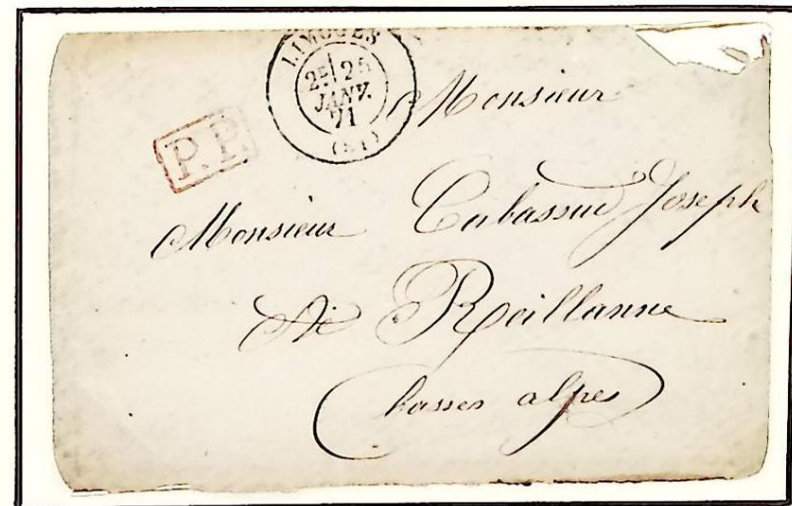 LIMOGES
2E 25
JANV.
71
(81)
P.P.
Monsieur
Monsieur Cabassud Joseph
à Reillanne
basses alpes